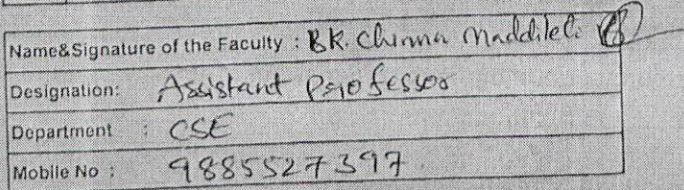 Name&Signature of the Faculty : B.K. Chinna Maddileti
Designation: Assistant Professor
Department : CSE
Mobile No : 9885527397